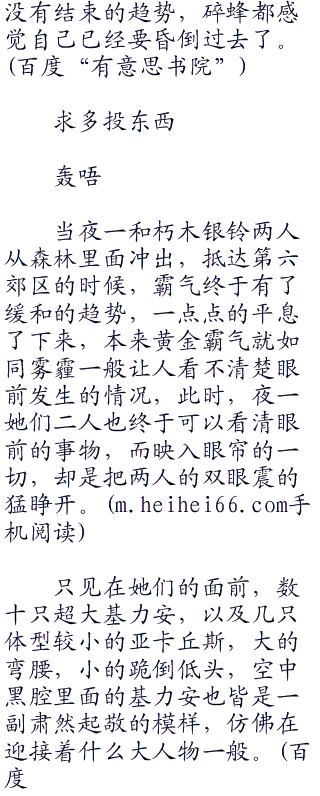 没有结束的趋势，碎蜂都感
觉自己已经要昏倒过去了。
(百度“有意思书院”)
求多投东西
轰唔
当夜一和朽木银铃两人
从森林里面冲出，抵达第六
郊区的时候，霸气终于有了
缓和的趋势，一点点的平息
了下来，本来黄金霸气就如
同雾霾一般让人看不清楚眼
前发生的情况，此时，夜一
她们二人也终于可以看清眼
前的事物，而映入眼帘的一
切，却是把两人的双眼震的
猛睁开。(m.heihei66.com手
机阅读)
只见在她们的面前，数
十只超大基力安，以及几只
体型较小的亚卡丘斯，大的
弯腰，小的跪倒低头，空中
黑腔里面的基力安也皆是一
副肃然起敬的模样，仿佛在
迎接着什么大人物一般。(百
度